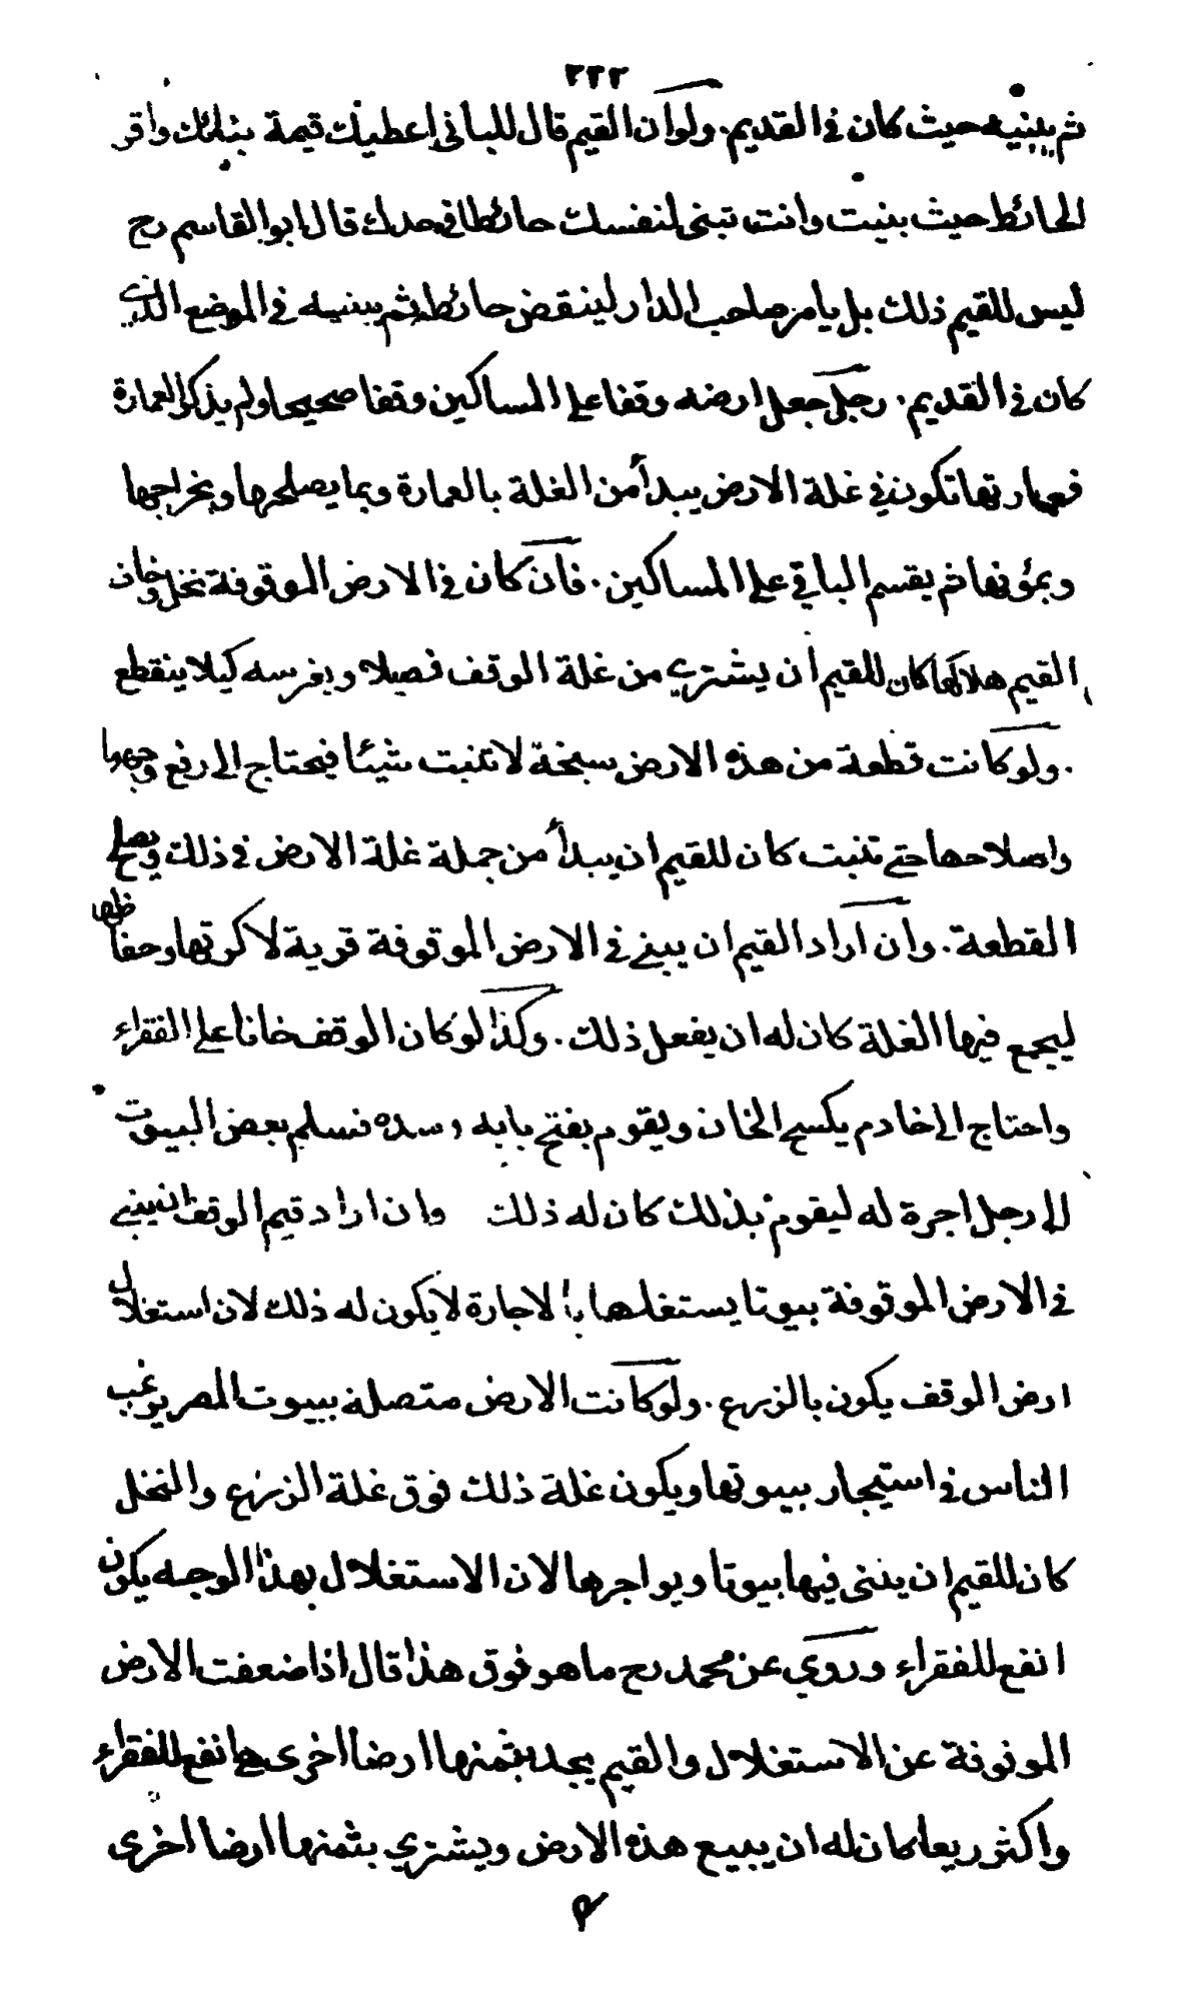 ٣٢٢
ثم يبنيه حيث كان في القديم. ولو ان القيم قال للباني اعطيك قيمة بنائك واقر
الحائط حيث بنيت وانت تبنى لنفسك حائطا في حدك قال ابو القاسم رح
ليس للقيم ذلك بل يامر صاحب الدار لينقض حائطه ثم يبنيه في الموضع الذي
كان في القديم. رجل جعل ارضه وقفا على المساكين وقفا صحيحا ولم يذكر العمارة
فعمارتها تكون في غلة الارض يبدأ من الغلة بالعمارة وبما يصلحها وبخراجها
وبمؤنها ثم يقسم الباقي على المساكين. فان كان في الارض الموقوفة نخل وخاف
القيم هلاكها كان للقيم أن يشتري من غلة الوقف فصيلا ويغرسه كيلا ينقطع
. ولو كانت قطعة من هذه الارض سبخة لا تنبت شيئا فيحتاج الى رفع وجهها
واصلاحها حتى تنبت كان للقيم ان يبدأ من جملة غلة الارض في ذلك ويصلح
القطعة. وان اراد القيم ان يبني في الارض الموقوفة قرية لاكرتها وحفاظها
ليجمع فيها الغلة كان له ان يفعل ذلك. وكذا لو كان الوقف خانا على الفقراء
واحتاج الى خادم يكسح الخان ويقوم بفتح بابه وسده فسلم بعض البيوت
الى رجل اجرة له ليقوم بذلك كان له ذلك وان اراد قيم الوقف ان يبني
في الارض الموقوفة بيوتا يستغلها بالاجارة لا يكون له ذلك لان استغلال
ارض الوقف يكون بالزرع. ولو كانت الارض متصلة ببيوت المصر يرغب
الناس في استيجار بيوتها ويكون غلة ذلك فوق غلة الزرع والنخل
كان للقيم ان يبنى فيها بيوتا ويواجرها لان الاستغلال بهذا الوجه يكون
انفع للفقراء وروي عن محمد رح ما هو فوق هذا قال اذا ضعفت الارض
الموقوفة عن الاستغلال والقيم يجد بثمنها ارضا اخرى هي انفع للفقراء
واكثر ريعا كان له ان يبيع هذه الارض ويشتري بثمنها ارضا اخرى